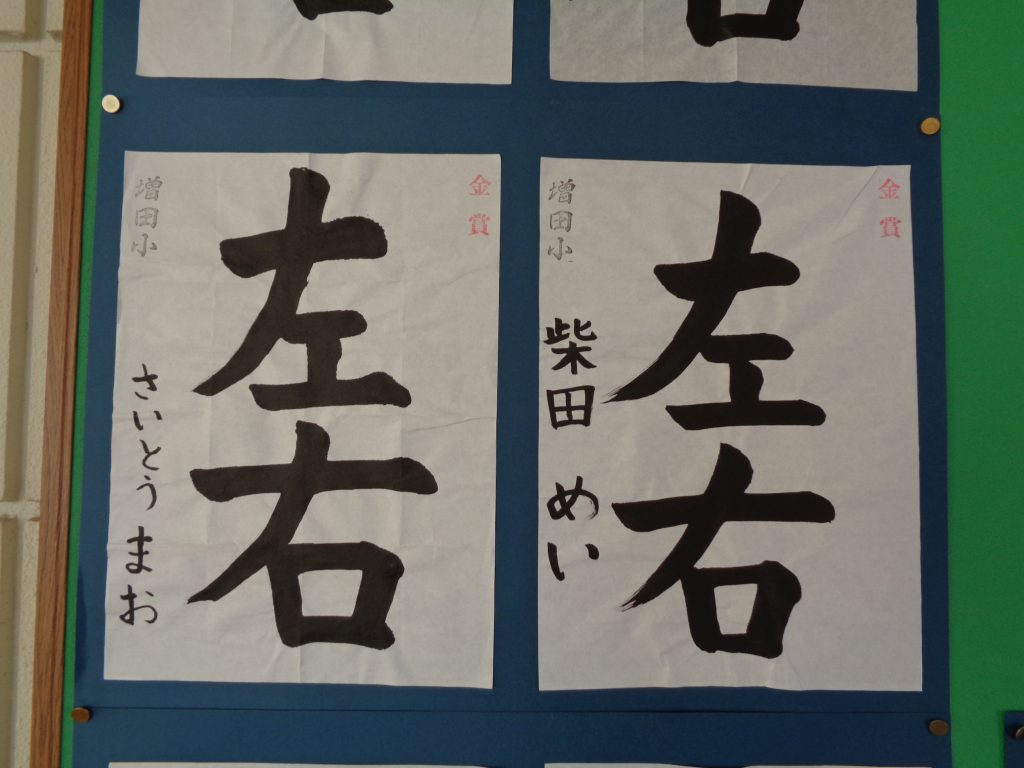 金賞
左右
増田小
柴田 めい
金賞
左右
増田小
さいとう まお